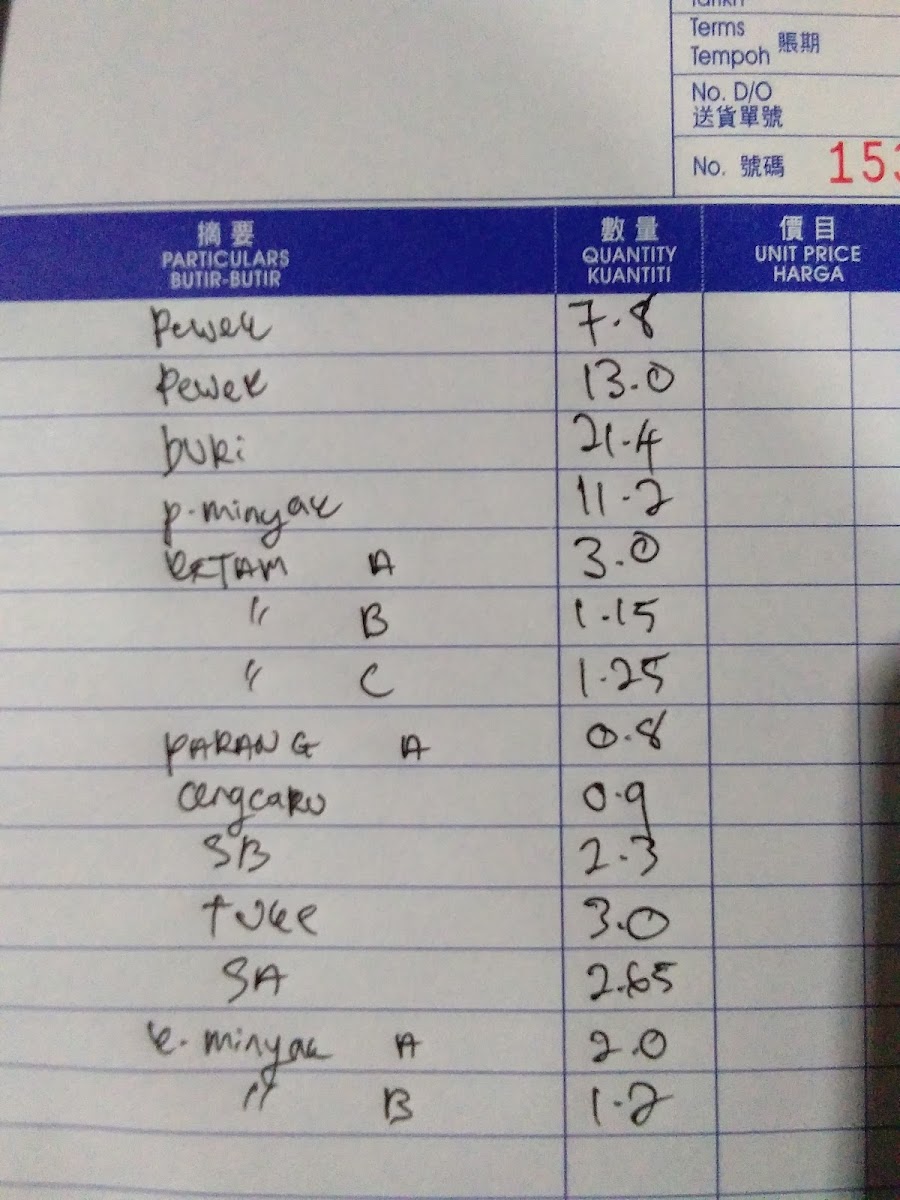 Terms
Tempoh 賬期
No. D/O
送貨單號
No. 號碼 153
摘要 數量 價目
PARTICULARS QUANTITY UNIT PRICE
BUTIR-BUTIR KUANTITI HARGA
Pewek 7.8
Pewek 13.0
DURi 21.4
p.minyak 11.2
KETAM A 3.0
" B 1.15
" C 1.25
PARANG A 0.8
Cengcaru 0.9
SB 2.3
2.3
SA 2.65
K. minyak A 2.0
" B 1.2